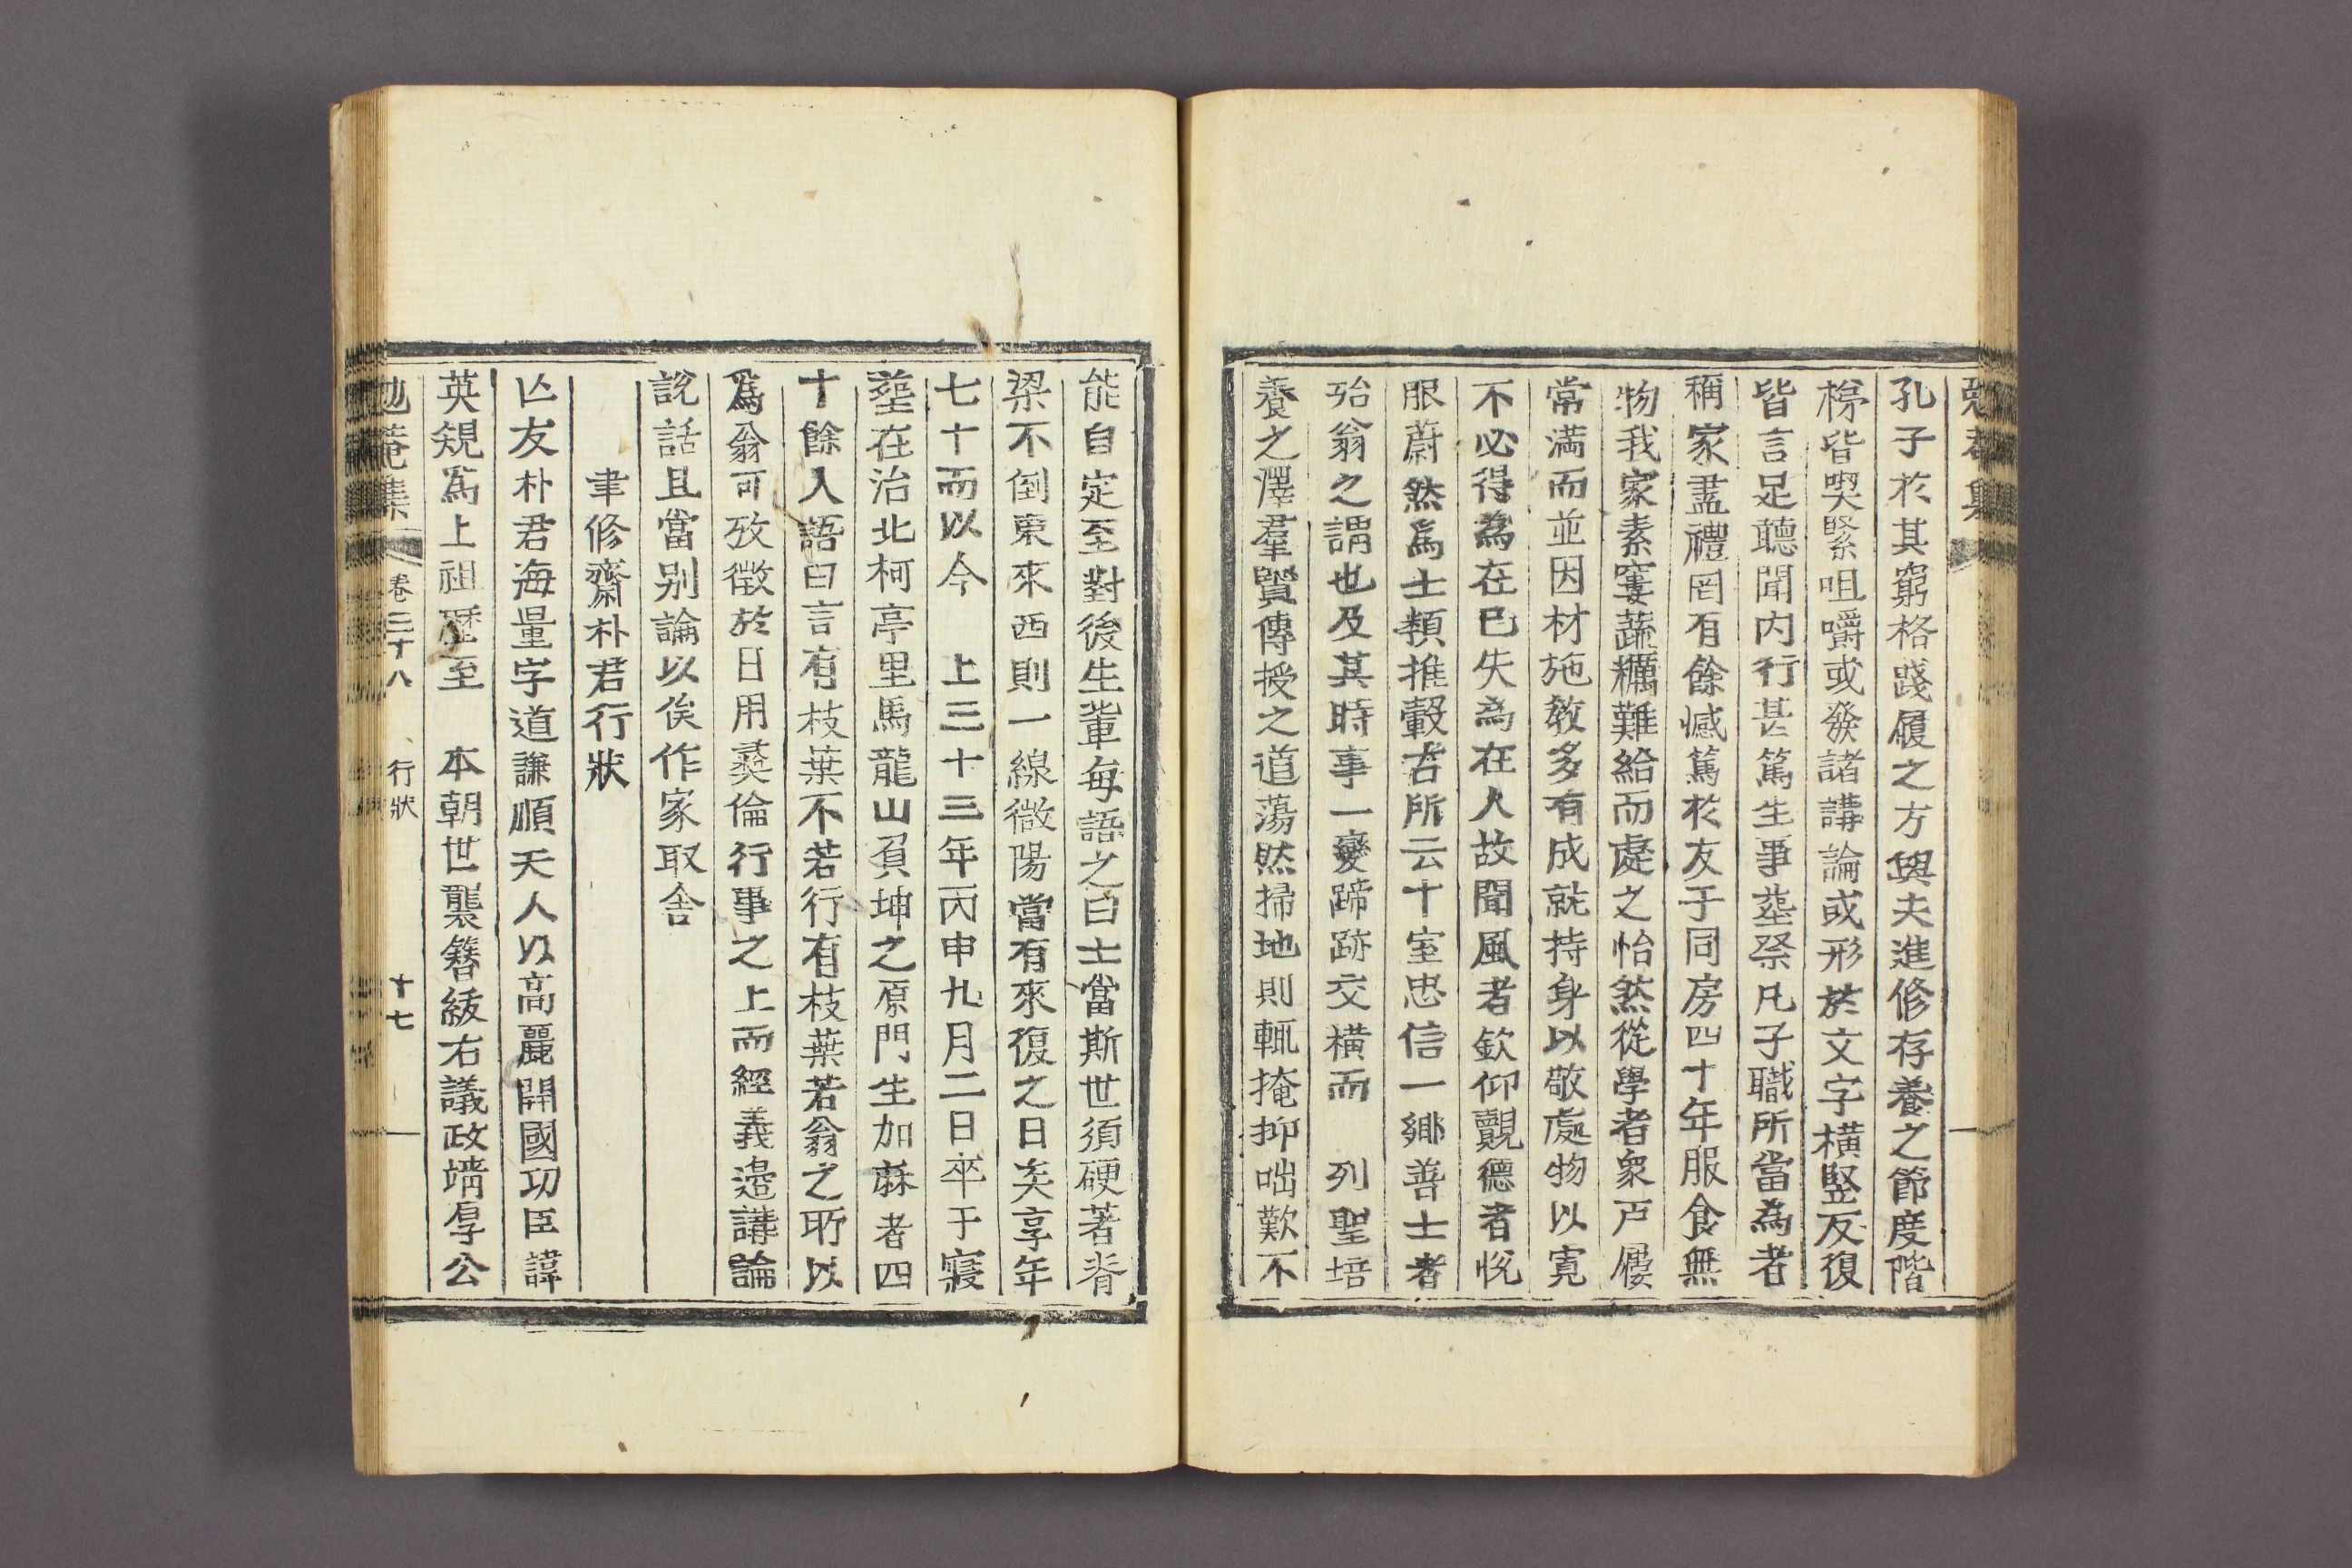 孔子於其窮格踐履之方與夫進修存養之節度階
梯皆喫緊咀嚼或發諸講論或形於文字橫竪反復
皆言足聽聞內行甚篤生事葬祭凡子職所當為者
稱家盡禮罔有餘憾篤於友于同房四十年服食無
物我家素窶蔬糲難給而處之怡然從學者衆戶屨
常滿而並因材施敎多有成就持身以敬處物以寬
不必得為在已失為在人故聞風者欽仰覿德者悅
服蔚然爲士類推轂古所云十室忠信一鄉善士者
殆翁之謂也及其時事一變蹄跡交橫而　列聖培
養之澤羣賢傳授之道蕩然掃地則輒掩抑咄歎不
能自定至對後生輩每語之曰士當斯世須硬著脊
梁不倒東來西則一線微陽當有來復之日矣享年
七十而以今　上三十三年丙申九月二日卒于寢
葬在治北柯亭里馬龍山負坤之原門生加麻者四
十餘人語曰言有枝葉不若行有枝葉若翁之所以
爲翁可攷徵於日用彛倫行事之上而經義邊講論
說話且當別論以俟作家取舍
聿修齋朴君行狀
亡友朴君海量字道謙順天人以高麗開國功臣諱
英規爲上祖歷至　本朝世襲簪紱右議政靖厚公
卷三十八　行狀　十七